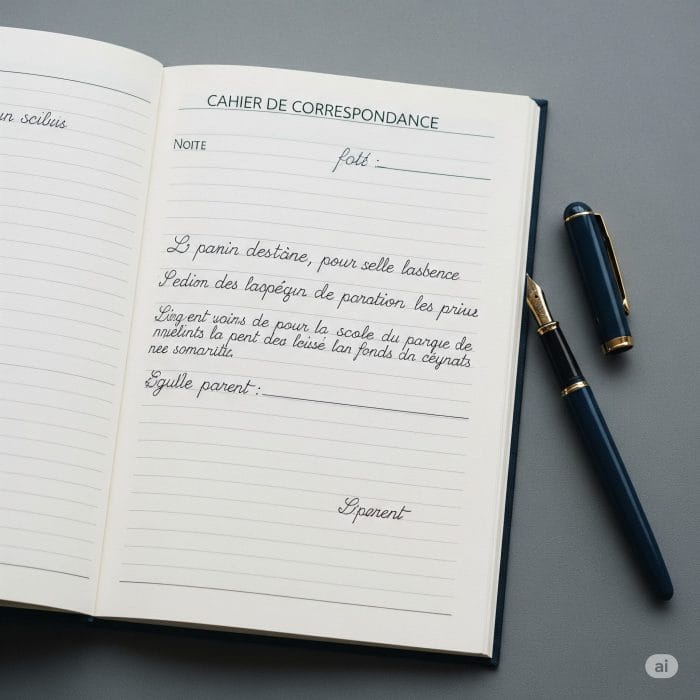 un scibus
CAHIER DE CORRESPONDANCE
NOITE
fott :
L panin destàne, pour selle lasbence
Sedion des laopégun de paration les prius
Ling ent voins de pour la scole du parque de
nnielints la pent deo leissé lan fonds dn céynats
nee somaritte.
Egulle parent :
Lparent
ai